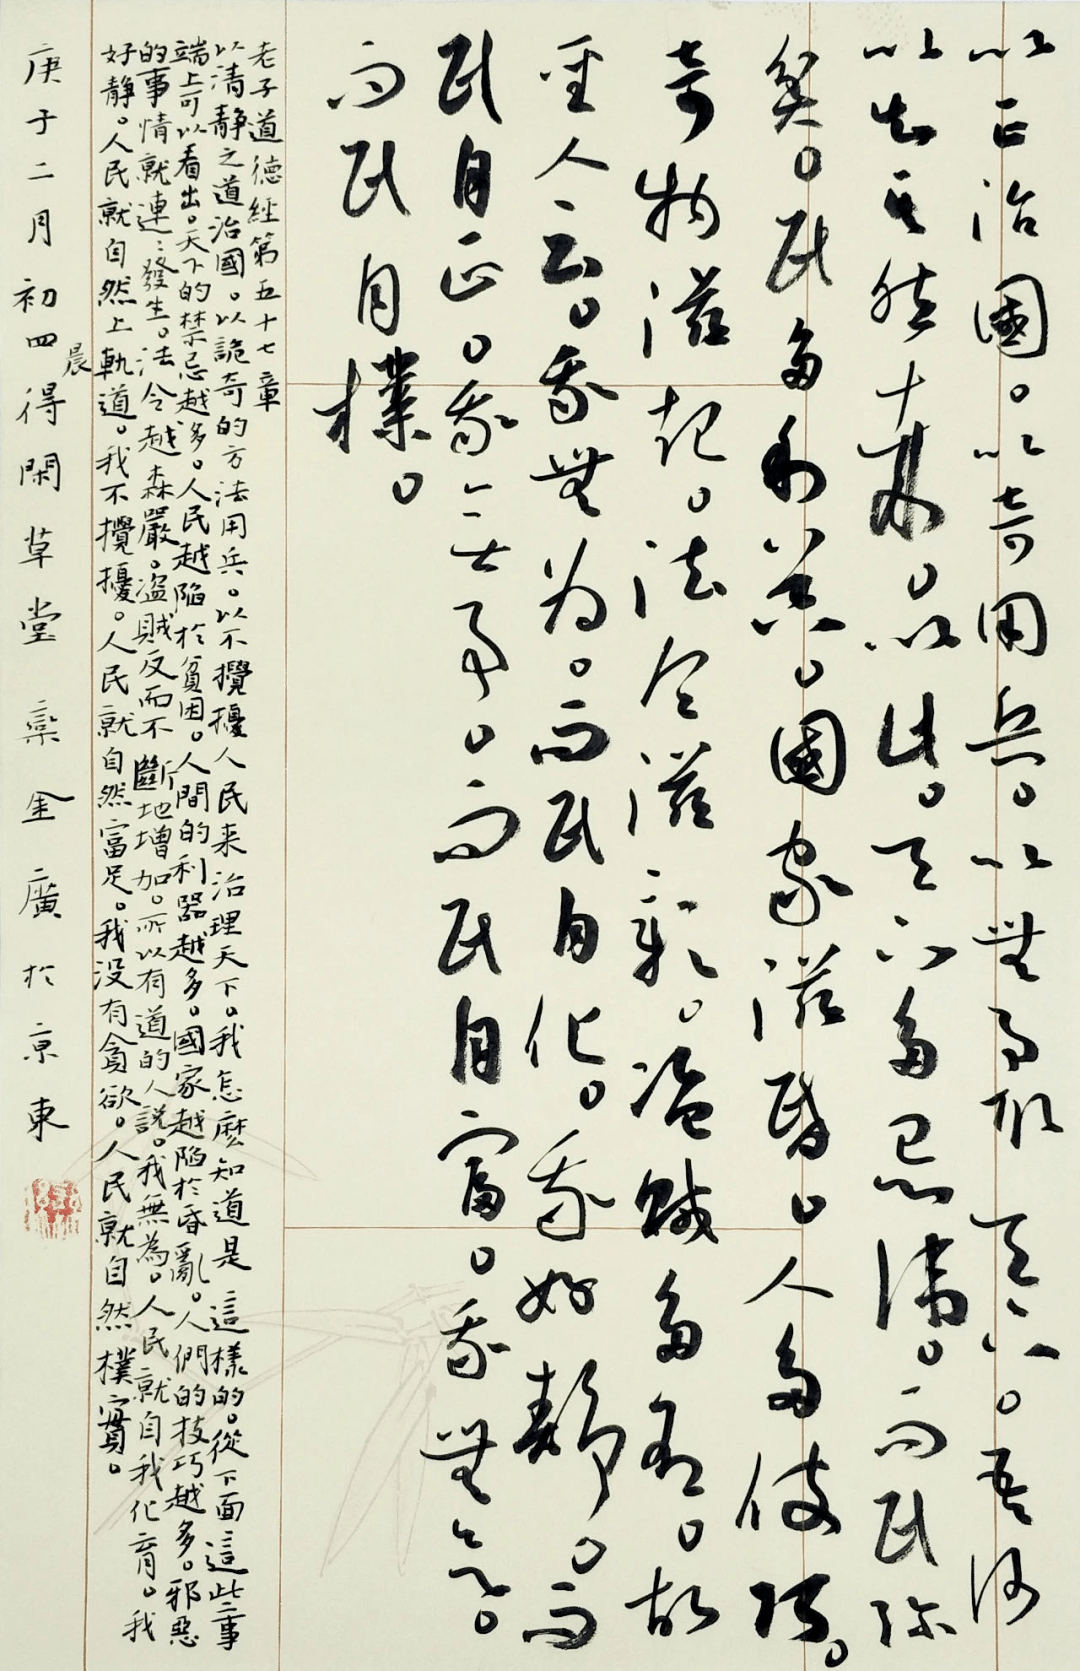 以正治國。以奇用兵。以無事取天下。吾何
以知其然哉。以此。天下多忌諱。而民彌
貧。民多利器。國家滋昏。人多伎巧。
奇物滋起。法令滋彰。盜賊多有。故
聖人云。我無為。而民自化。我好靜。而
民自正。我無事。而民自富。我無欲。
而民自樸。
老子道德經第五十七章
以清靜之道治國。以詭奇的方法用兵。以不攪擾人民来治理天下。我怎麼知道是這樣的。從下面這些事
端上可以看出。天下的禁忌越多。人民越陷於貧困。人間的利器越多。國家越陷於昏亂。人們的技巧越多。邪惡
的事情就連：發生。法令越森嚴。盗賊反而不斷地增加。所以有道的人説。我無為。人民就自我化育。我
好靜。人民就自然上軌道。我不攪擾。人民就自然富足。我没有貪欲。人民就自然樸實。
庚子二月初四晨得閑草堂 欒金廣於京東